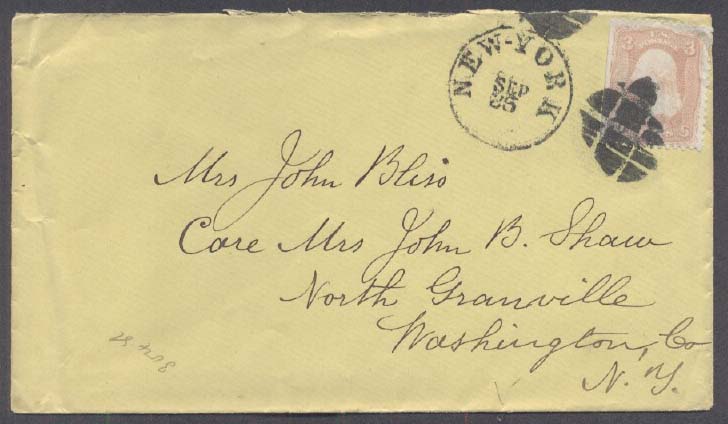 NEW-YORK
SEP
25
3 U.S. 3
Mrs John Bliss
Care Mrs John B. Shaw
North Granville
Washington, Co
N. Y.